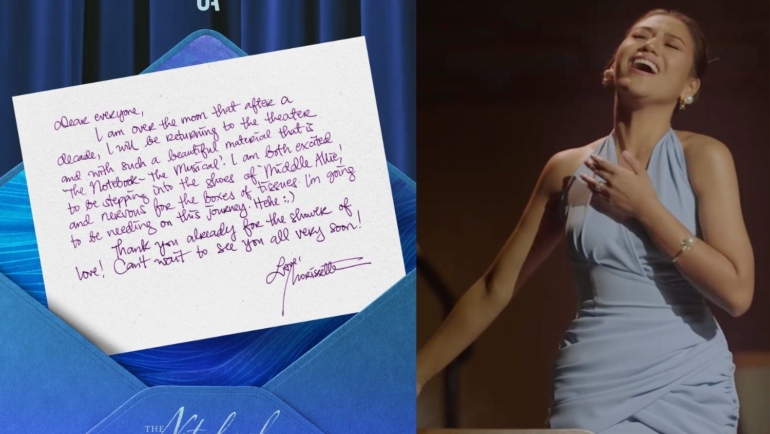 Dear everyone,
I am over the moon that after a
decade, I will be returning to the theater
and with such a beautiful material that is
The Notebook The Musical! I am both excited
to be stepping into the shoes of 'Middle Allie,'
and nervous for the boxes of tissues I'm going
to be needing on this journey! Hehe :,)
Thank you already for the shower of
love! Can't wait to see you all very soon!
Love,
Morissette
THE Notebook